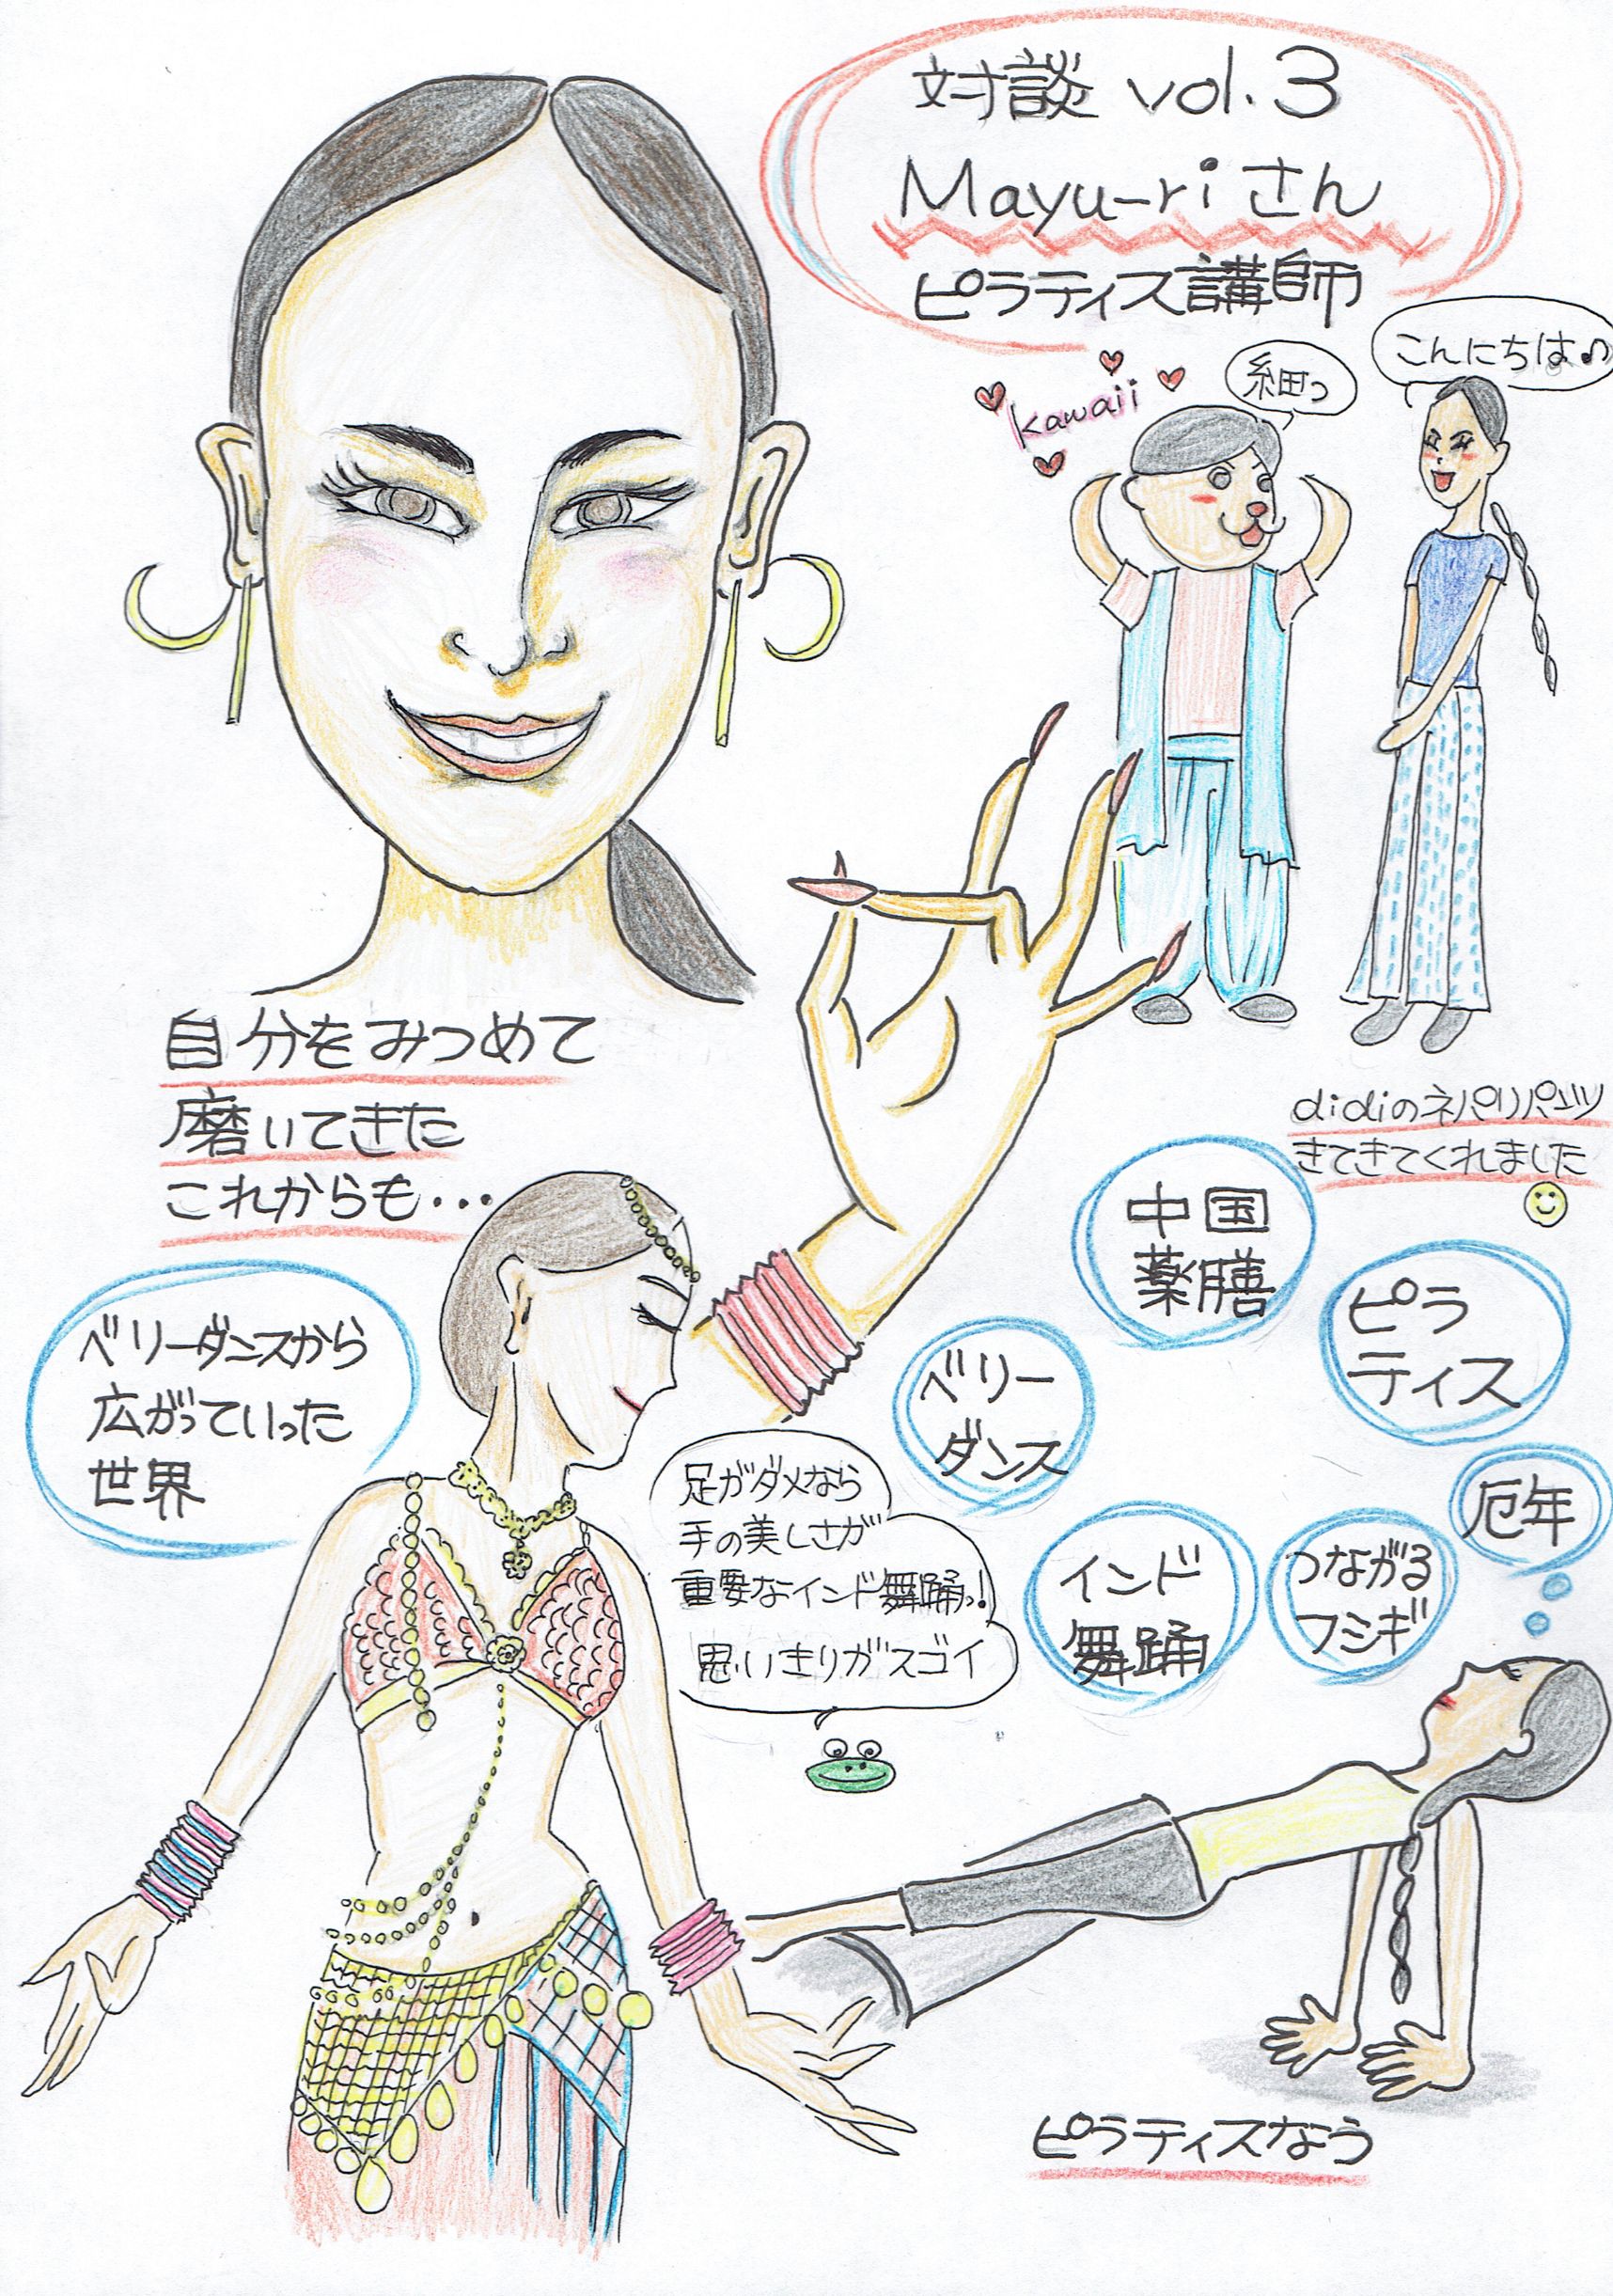 対談 vol.3
Mayu-riさん
ピラティス講師
kawaii
細っ
こんにちは♪
didiのネパリパンツ
きてきてくれました
自分をみつめて
磨いてきた
これからも・・・
ベリーダンスから
広がっていった
世界
中国
薬膳
ピラ
ティス
ベリー
ダンス
厄年
インド
舞踊
つながる
フシギ
足がダメなら
手の美しさが
重要なインド舞踊っ!
思いきりがスゴイ
ピラティスなう